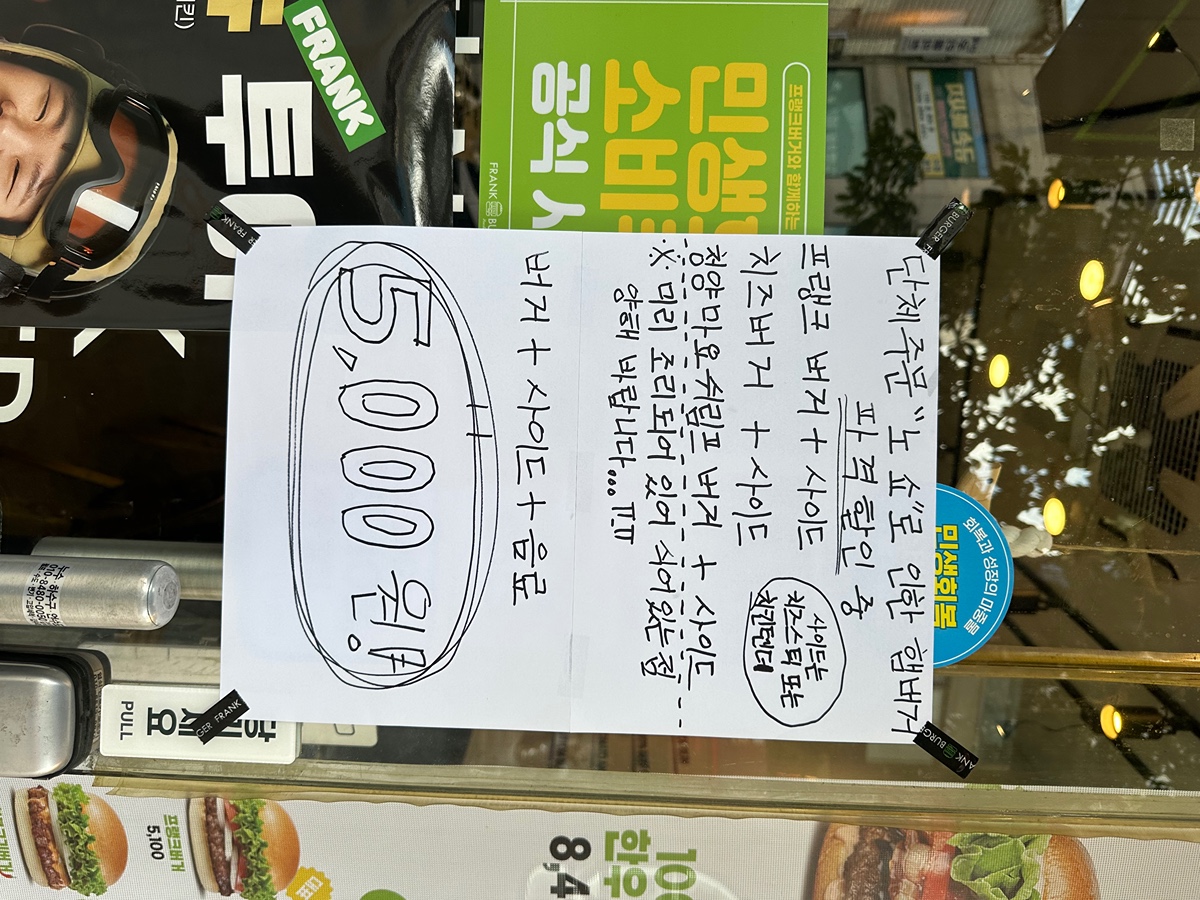 단체주문 "노쇼"로 인한 햄버거
파격할인 중
프랭크 버거 + 사이드
치즈버거 + 사이드
사이드는
치즈스틱 또는
치킨텐더
청양마요쉬림프 버거 + 사이드
※ 미리 조리되어 있어 식어있는 점
양해 바랍니다... ㅠㅠ
버거 + 사이드 + 음료
5,000 원!
FRANK
프랭크버거와 함께하는
민생
소비
공식
FRANK
당기세요
PULL
회복과 성장의 마중물
민생회복
누수 하수구
프랭크버거
5,100
대표
100
한우
8,4
BURGER
FRANK
GER FRANK
ANK BURGER